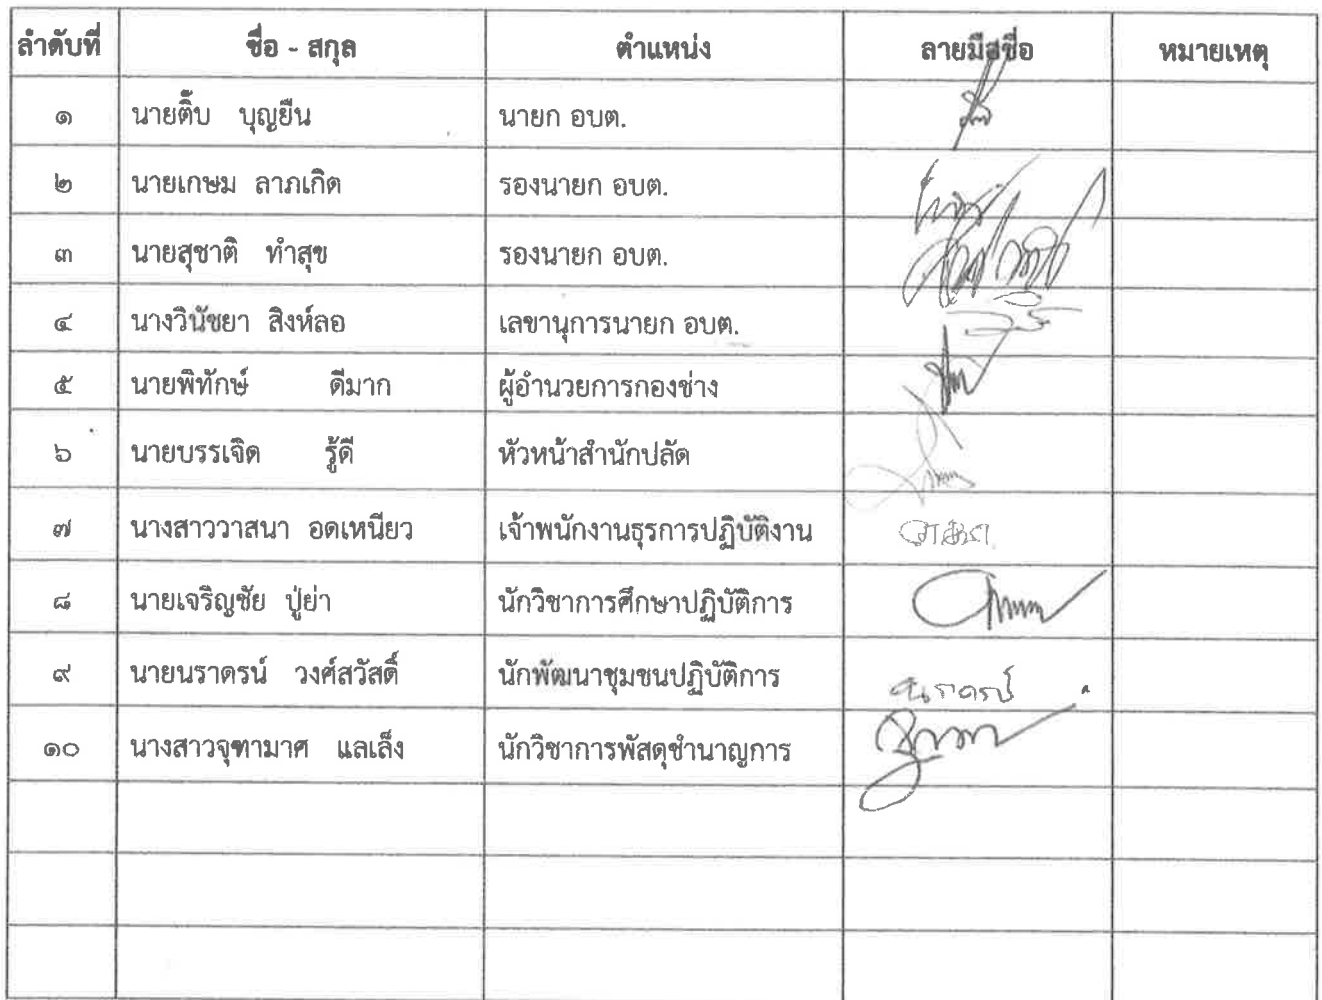 ลำดับที่ ชื่อ - สกุล ตำแหน่ง ลายมือชื่อ หมายเหตุ
๑ นายติ๊บ บุญยืน นายก อบต.
๒ นายเกษม ลาภเกิด รองนายก อบต.
๓ นายสุชาติ ทำสุข รองนายก อบต.
๔ นางวินัชยา สิงห์ลอ เลขานุการนายก อบต.
๕ นายพิทักษ์ ดีมาก ผู้อำนวยการกองช่าง
๖ นายบรรเจิด รู้ดี หัวหน้าสำนักปลัด
๗ นางสาววาสนา อดเหนียว เจ้าพนักงานธุรการปฏิบัติงาน
๘ นายเจริญชัย ปู่ย่า นักวิชาการศึกษาปฏิบัติการ
๙ นายนราดรน์ วงศ์สวัสดิ์ นักพัฒนาชุมชนปฏิบัติการ
๑๐ นางสาวจุฑามาศ แลเล็ง นักวิชาการพัสดุชำนาญการ